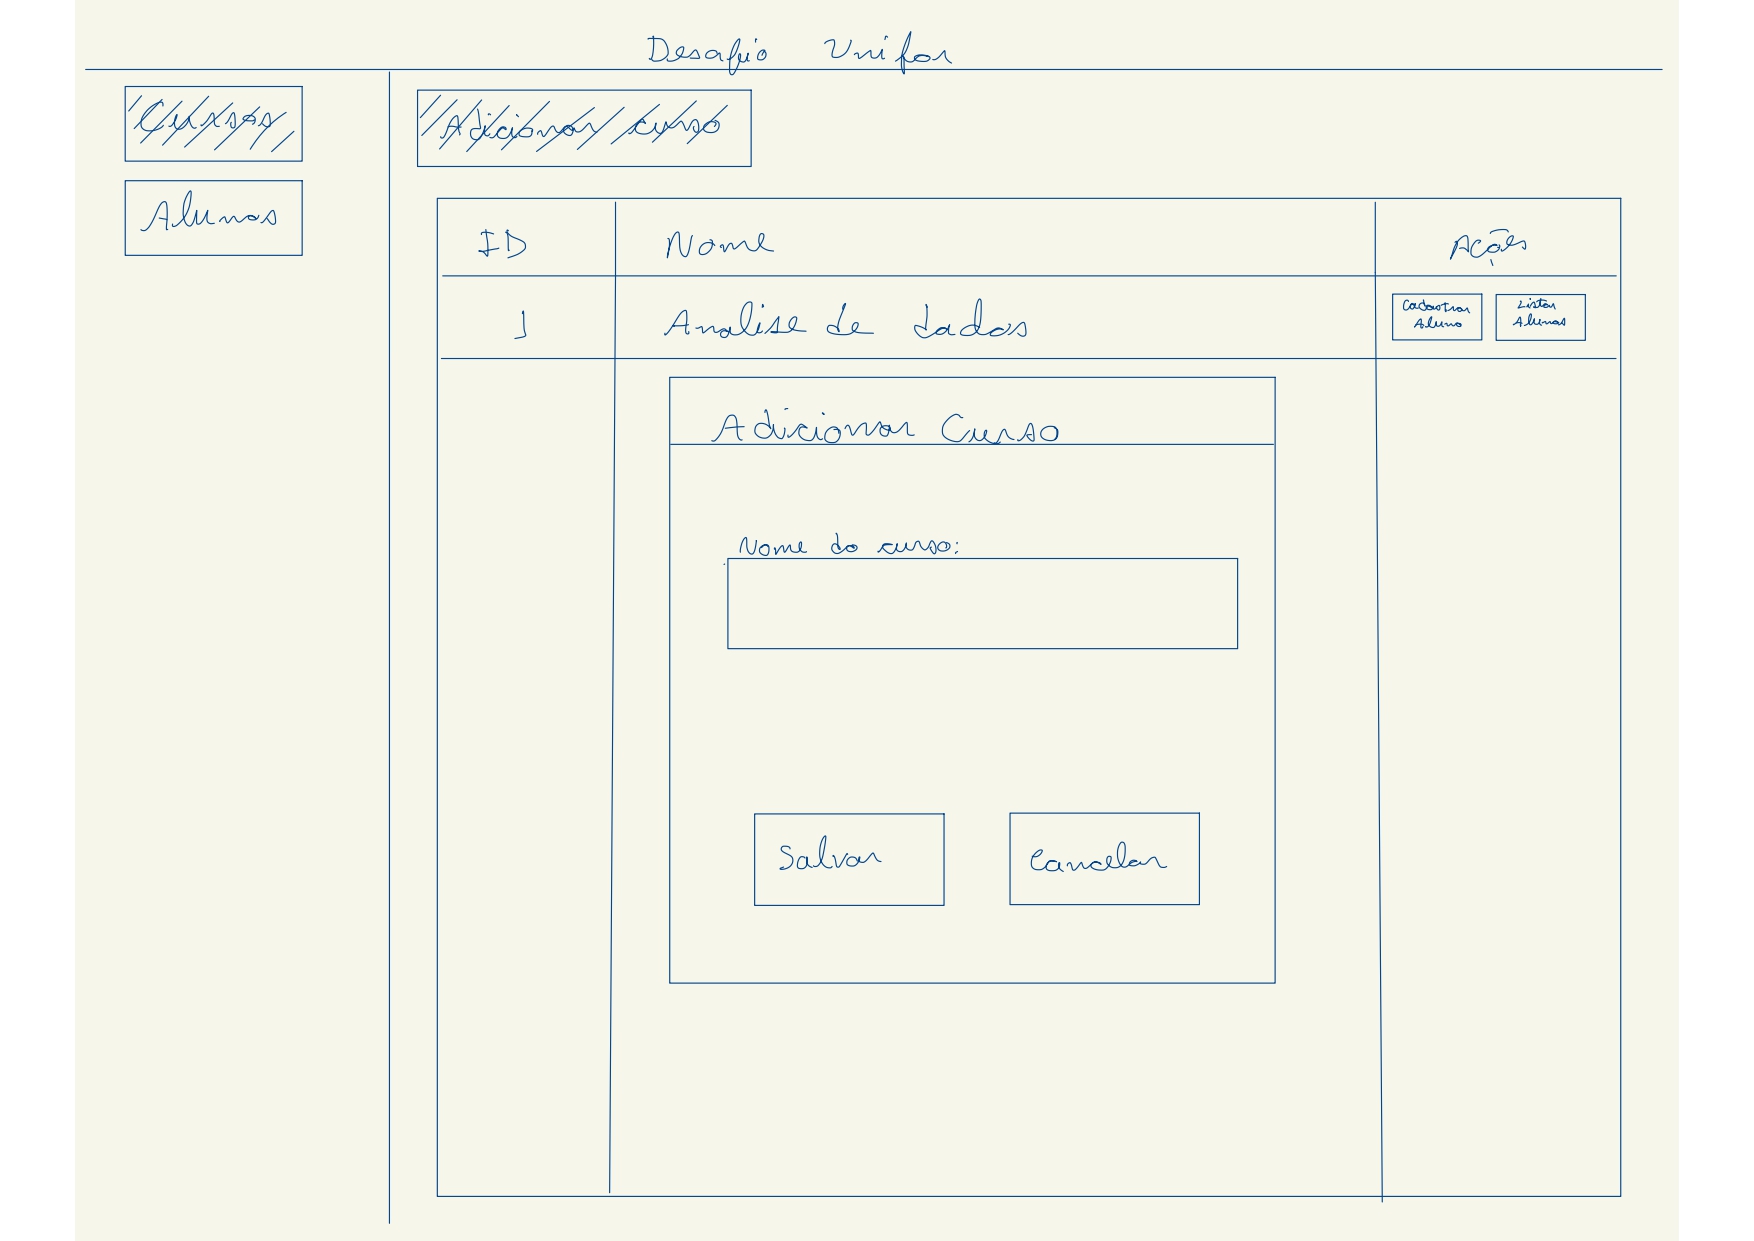 Desafio Unifor
Cursos
Adicionar curso
Alunos
ID Nome Ações
1 Analise de dados
Cadastrar
Aluno
Listar
Alunos
Adicionar Curso
Nome do curso:
Salvar Cancelar